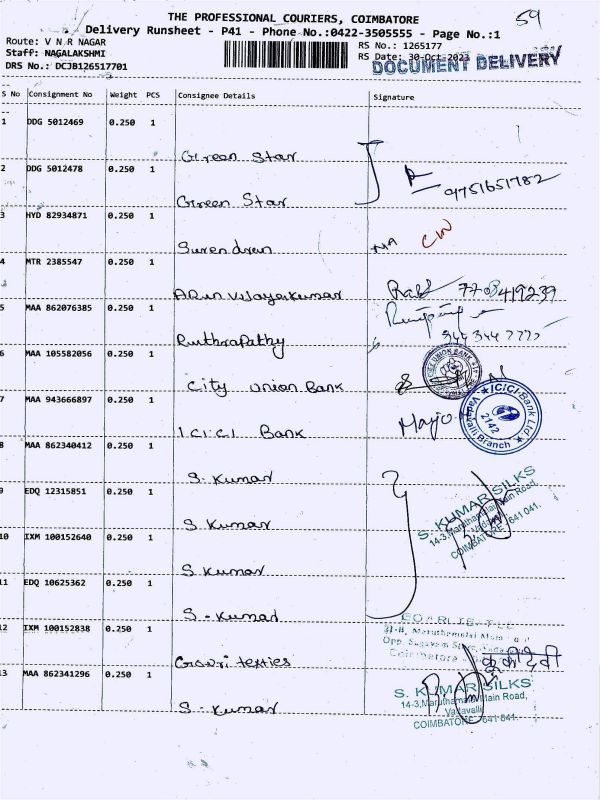 59
THE PROFESSIONAL COURIERS, COIMBATORE
Delivery Runsheet - P41 - Phone No.:0422-3505555 - Page No.:1
Route: V N R NAGAR
RS No.: 1265177
Staff: NAGALAKSHMI
RS Date: 30-Oct-2023
DOCUMENT DELIVERY
DRS No.: DCJB126517701
S No Consignment No Weight PCS Consignee Details Signature
1 DDG 5012469 0.250 1
Green Star
2 DDG 5012478 0.250 1
9751651782
Green Star
3 HYD 82934871 0.250 1
Surendran
NA
4 MTR 2385547 0.250 1
Arun Vijayakumar
7708419239
5 MAA 862076385 0.250 1
Ruthrapathy
6 MAA 105582056 0.250 1
City Union Bank
7 MAA 943666897 0.250 1
ICICI Bank Ltd
2142
Vadavalli Branch
I.C.I.C.I Bank
8 MAA 862340412 0.250 1
S. Kumar
9 EDQ 12315851 0.250 1
S. KUMAR SILKS
14-3, Maruthamalai Main Road,
Vadavalli
COIMBATORE - 641 041.
S Kumar
10 IXM 100152640 0.250 1
S Kumar
11 EDQ 10625362 0.250 1
S - Kumar
12 IXM 100152838 0.250 1
Gowri texties
13 MAA 862341296 0.250 1
S. KUMAR SILKS
14-3, Maruthamalai Main Road,
Vadavalli
COIMBATORE - 641 041.
S - Kumar